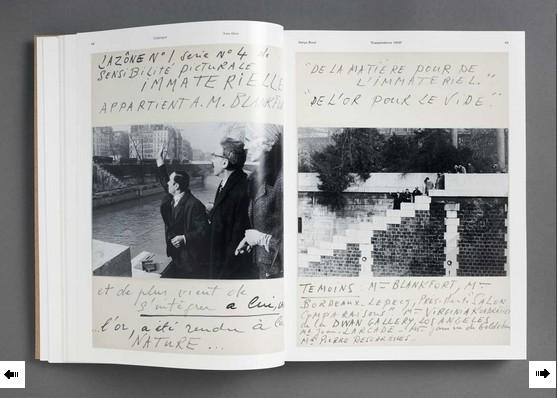 Yves Klein
LAZÔNE N°1, serie N°4 de
SENSIBILITÉ PICTURALE
IMMATERIELLE
APPARTIENT A. M. BLANKFO
et de plus vient de
s'intégrer a lui,
l'or, a été rendu à la
NATURE...
"DE LA MATIÈRE POUR DE
L'IMMATERIEL."
"DE L'OR POUR LE VIDE."
TEMOINS : Mme BLANKFORT, Mme
BORDEAUX LEPECQ, Présidente SALON
COMPARAISONS
de la DWAN GALLERY LOS ANGELES
LARCADE
PIERRE DESCARGUES